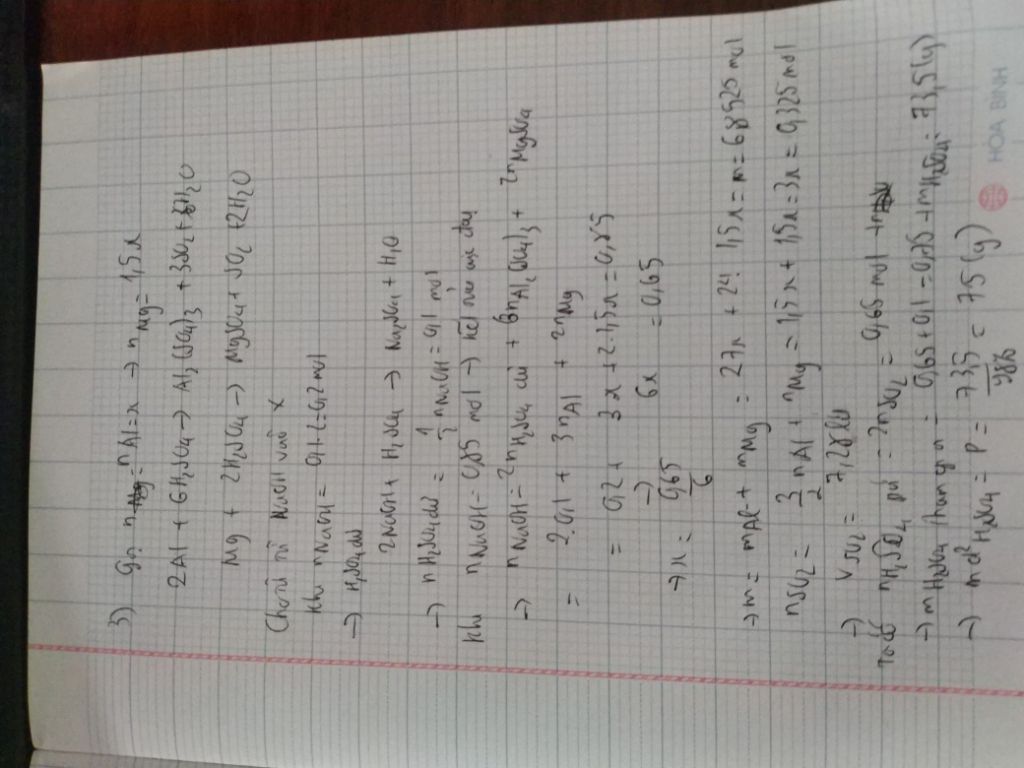 3) Gọi nAl = x → nMg = 1,5x
2Al + 6H2SO4 → Al2(SO4)3 + 3SO2 + 6H2O
Mg + 2H2SO4 → MgSO4 + SO2 + 2H2O
NaOH vào X
Khi nNaOH = 0,1.2 = 0,2 mol
→ H2SO4 dư
2NaOH + H2SO4 → Na2SO4 + H2O
→ nH2SO4 dư = 1/2 nNaOH = 0,1 mol
Khi nNaOH = 0,85 mol → kết tủa
→ nNaOH = 2nH2SO4 dư + 6nAl2(SO4)3 + 2nMgSO4
= 2.0,1 + 3nAl + 2nMg
= 0,2 + 3x + 2.1,5x = 0,85
→ 6x = 0,65
→ x = 0,65/6
→ m = mAl + mMg = 27x + 24.1,5x = m = 6,8250 mol
nSO2 = 3/2 nAl + nMg = 1,5x + 1,5x = 3x = 0,325 mol
→ VSO2 = 7,28 lít
nH2SO4 pư = 2nSO2 = 0,65 mol
→ mH2SO4 = 0,65 + 0,1 = 0,75 → mH2SO4 = 73,5 (g)
→ mdd H2SO4 = P = 73,5/98% = 75 (g)
HÒA BÌNH